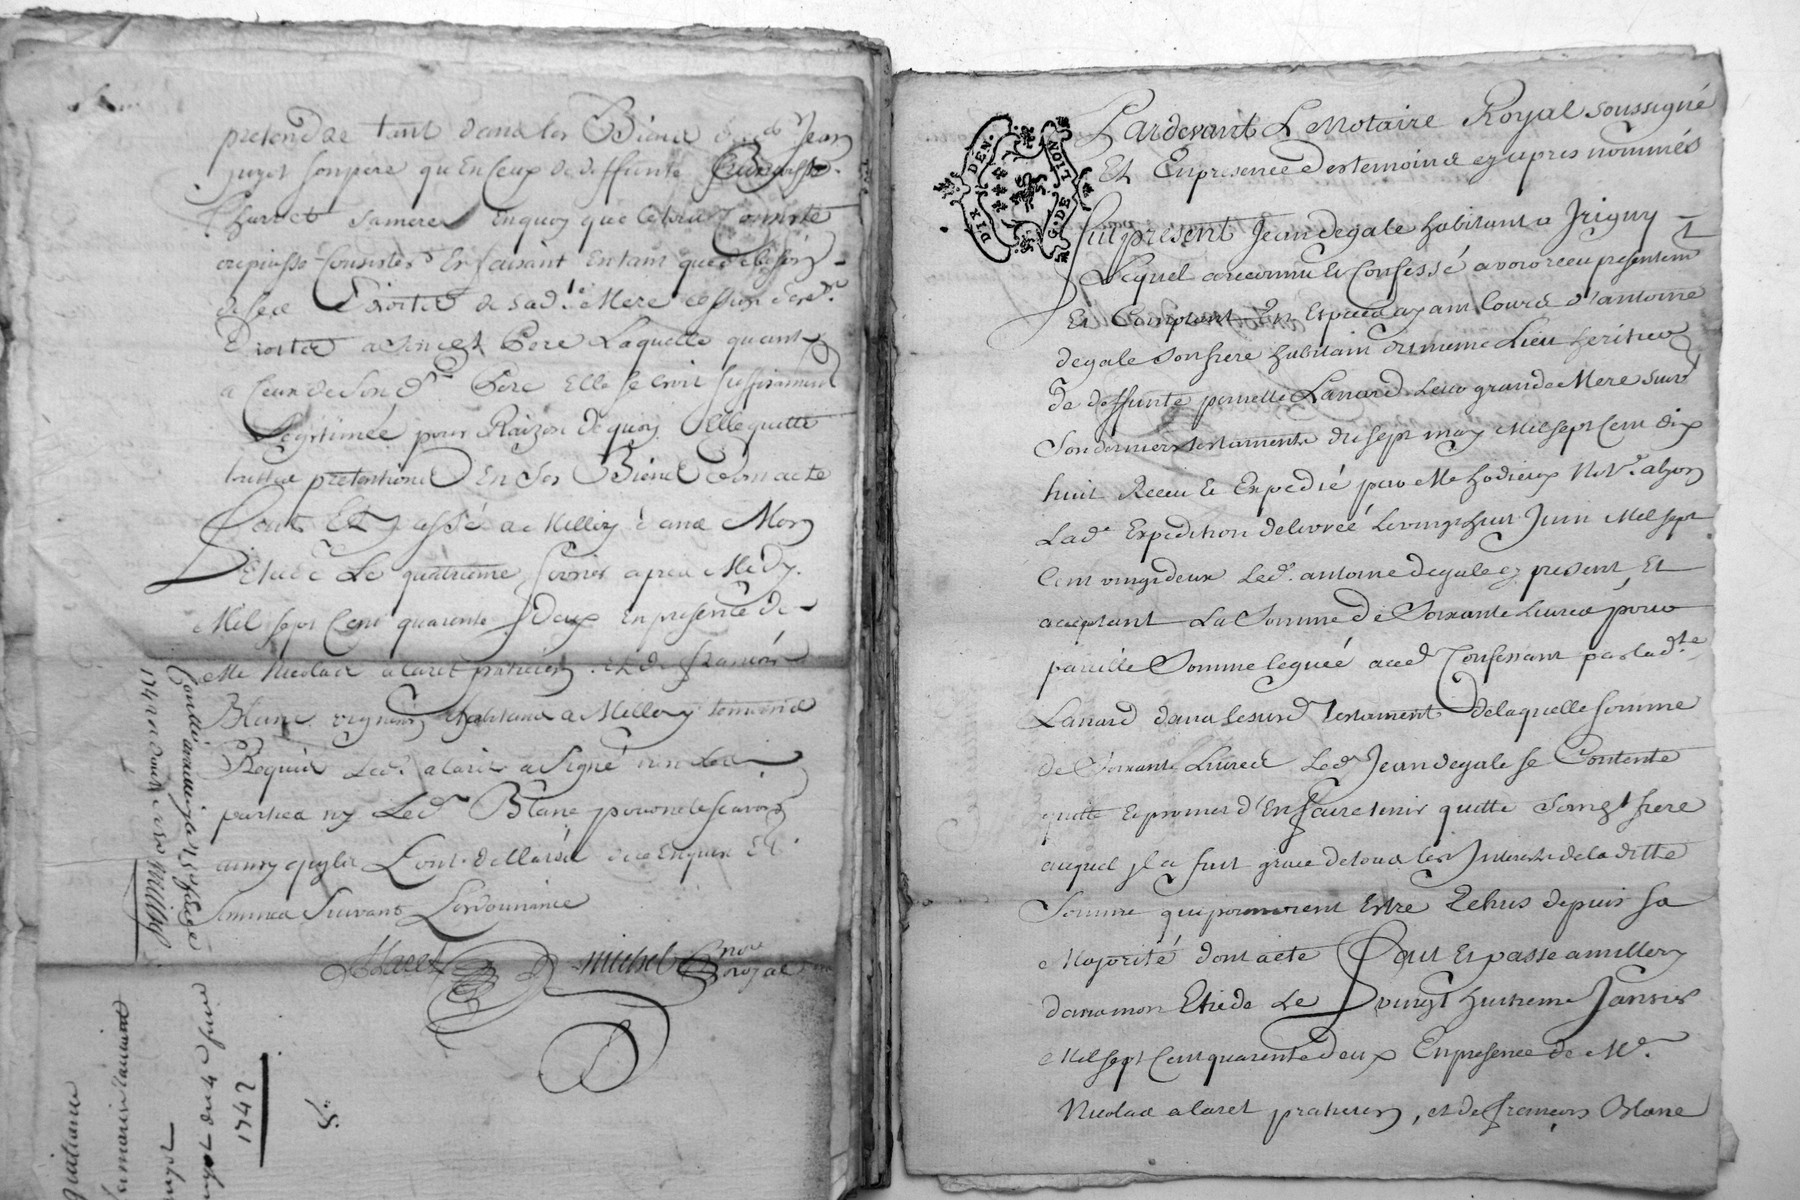 pretendre tant dans les Biens dud. Jean
guyot son pere qu'En Ceux de deffunte
Charvet sa mere En quoy que le tout Consiste
et puisse Consister En faisant En tant que de besoin
de ses Droits de sad.te Mere cession aud.
Pere Laquelle quant
a Ceux de Son d. Pere Elle se croit suffisament
Legitimée pour Raizon de quoy Elle quitte
toutes pretentions En Ses Biens dont acte
fait Et passé a Millery dans Mon
Etude Le quatrieme fevrier apres Midy
Mil sept Cent quarante Deux En presence de
Me Nicolas alaret praticien et de francois
Blanc vigneron habitans a Millery temoins
Requis Led. alaret a Signé non Les
parties ny Led. Blanc pour ne le scavoir
ainsy quils L'ont declaré de ce Enquis Et
sommes Suivant L'ordonnance
alaret michel nore
royal
Controllé a le 15 fevrier
1742
guyot du 4 fevrier
1742
DIX DEN. G. DE LION
Pardevant Le Notaire Royal soussigné
Et En presence des temoins cy apres nommés
fut present Jean degale habitant a Irigny
Lequel a reconnu Et Confessé avoir receu presentem.
Et Comptant En Especes ayant Cours d'antoine
degale son frere habitant du meme Lieu heritier
de deffunte pernette Lanard Leur grande Mere suiv.
Son dernier testament du sept may Mil sept Cent dix
huit Receu Et Expedié par Me hodieux
Lad. Expedition delivrée Le vingt huit Juin Mil sept
Cent vingt deux Led. antoine degale cy present Et
acceptant La Somme de Soixante Livres pour
pareille Somme leguée aud. Confessant par lad.te
Lanard dans Le susd. testament de laquelle somme
de Soixante Livres Led. Jean degale se Contente
quitte Et promet d'En faire tenir quitte Sond. frere
auquel Jl a fait grace de tous les Interests de la ditte
Somme qui pourroient Estre Echus depuis sa
Majorité dont acte fait Et passé a millery
dans mon Etude Le vingt huitieme Janvier
Mil sept Cent quarante deux En presence de Me.
Nicolas alaret praticien, et de francois Blanc